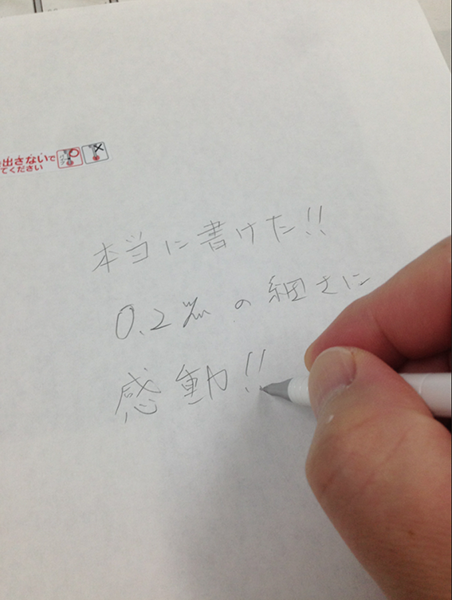 出さないで
てください
本当に書けた!!
0.2㎜の細さに
感動!!